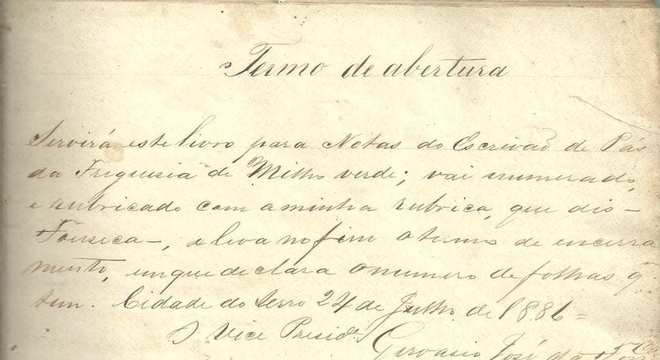 Termo de abertura
Servirá este livro para Notas do Escrivaõ de Pás
da Freguesia de Milho verde; vai numerado,
e rubricado com a minha rubrica, que dis –
Fonseca –, e leva no fim o termo de encerra
mento, em que declara o numero de folhas q.
tem. Cidade do Serro 24 de Julho de 1886 =
O Vice Presid.e
Gervasio José da